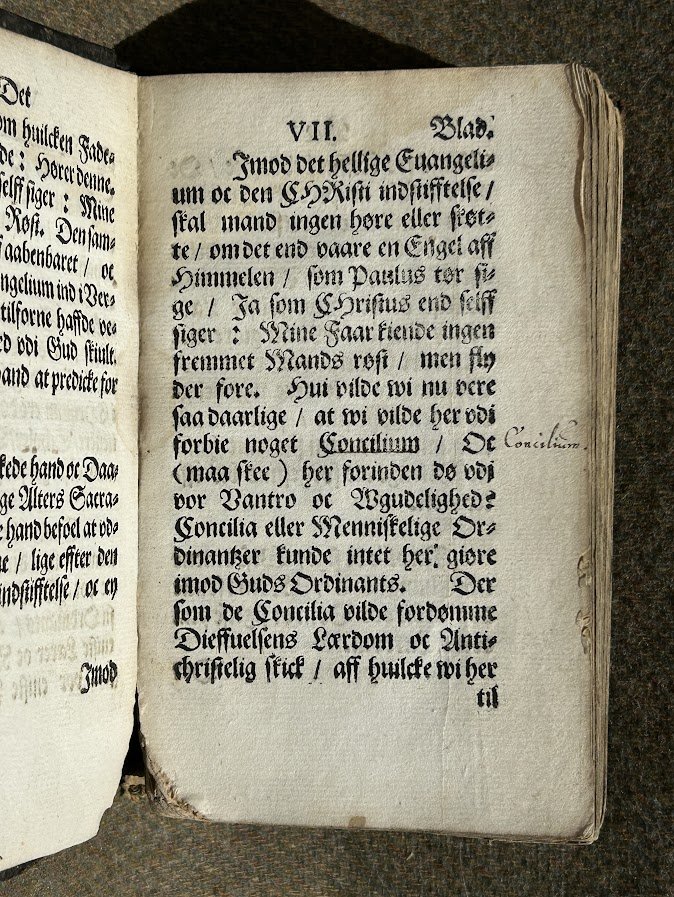 Det
om huilcken Fade-
de: Hører denne.
selff siger: Mine
Røst. Den sam-
aabenbaret / oc
ngelium ind i Ver-
tilforne haffde ve-
rd vdi Gud skiult.
hand at predicke for
kede hand oc Daa-
ge Alters Sacra-
hand befoel at vd-
/ lige effter den
indstifftelse / oc ey
Jmod
VII. Blad.
Jmod det hellige Euangeli-
um oc den CHRisti indstifftelse /
skal mand ingen høre eller skøt-
te / om det end vaare en Engel aff
Himmelen / som Paulus tør si-
ge / Ja som CHristus end selff
siger : Mine Faar kiende ingen
fremmet Mands røst / men fly
der fore. Hui vilde wi nu vere
saa daarlige / at wi vilde her vdi
forbie noget Concilium / Oc
(maa skee) her forinden dø vdi
vor Vantro oc Wgudelighed?
Concilia eller Menniskelige Or-
dinantzer kunde intet her giøre
imod Guds Ordinants. Der
som de Concilia vilde fordømme
Dieffuelsens Lærdom oc Anti-
christelig skick / aff huilcke wi her
til
Concilium.